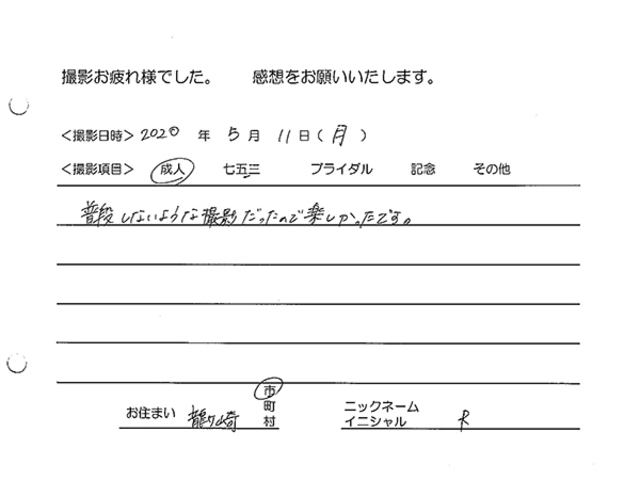 撮影お疲れ様でした。 感想をお願いいたします。
<撮影日時> 2020 年 5 月 11 日 (月)
<撮影項目> 成人 七五三 ブライダル 記念 その他
普段しないような撮影だったので楽しかったです。
お住まい 龍ヶ崎 市 町 村
ニックネーム イニシャル R